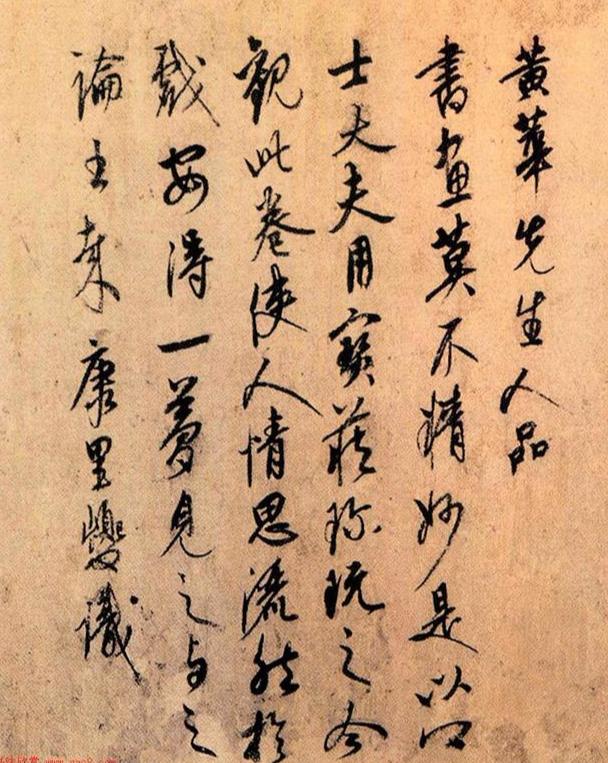 黃華先生人品
書畫莫不精妙是以
士大夫用寶藏珍玩之今
觀此卷使人情思然於
戲安得一夢見之与之
論康里巎識